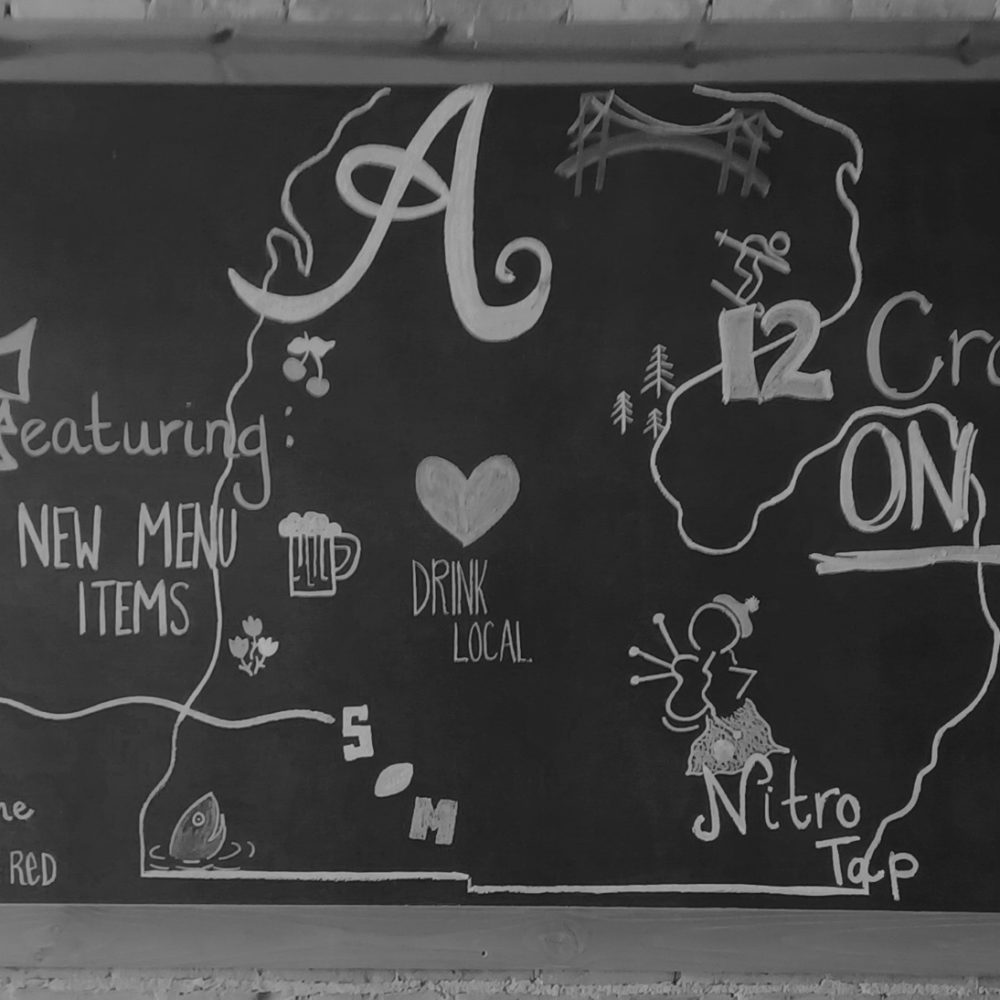 A
12 Cr
ON
Featuring:
NEW MENU
ITEMS
DRINK
LOCAL.
S
M
Nitro
Tap
RED